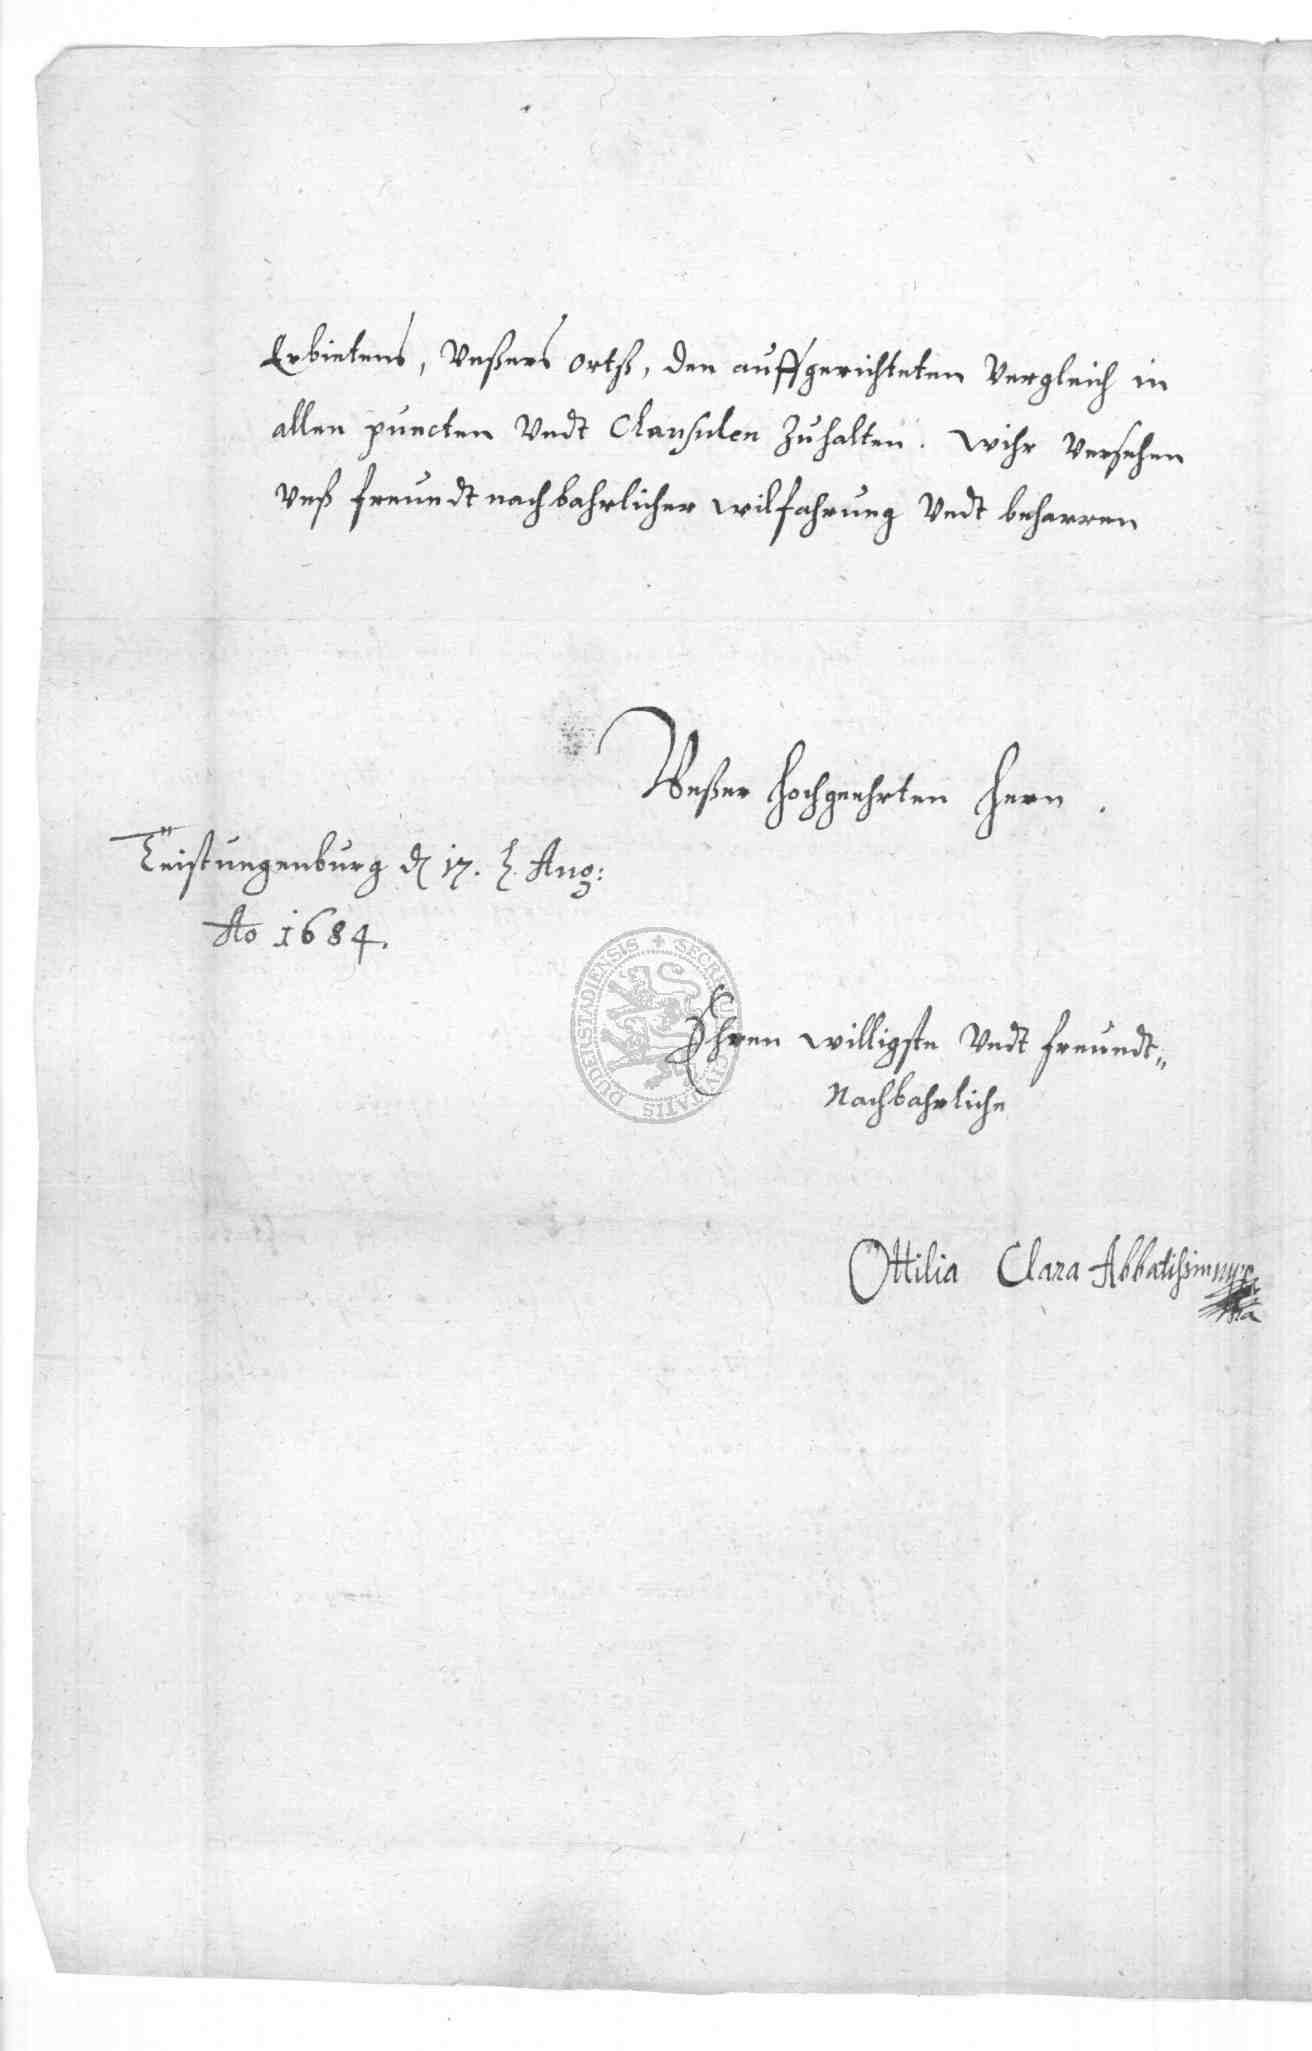 Erbietens, Vnßers ortß, den auffgerichteten Vergleich in
allen puncten Vndt Clausulen zuhalten. Wihr Versehen
Vnß freundtnachbahrlicher wilfahrung Vndt beharren
Vnßer hochgeehrten Hern.
Teistungenburg d 17. Aug:
Ao 1684.
SECRETUM CIVITATIS DUDERSTADIENSIS
Ihren willigste Vndt freundt„
Nachbahrliche
Ottilia Clara Abbatißin